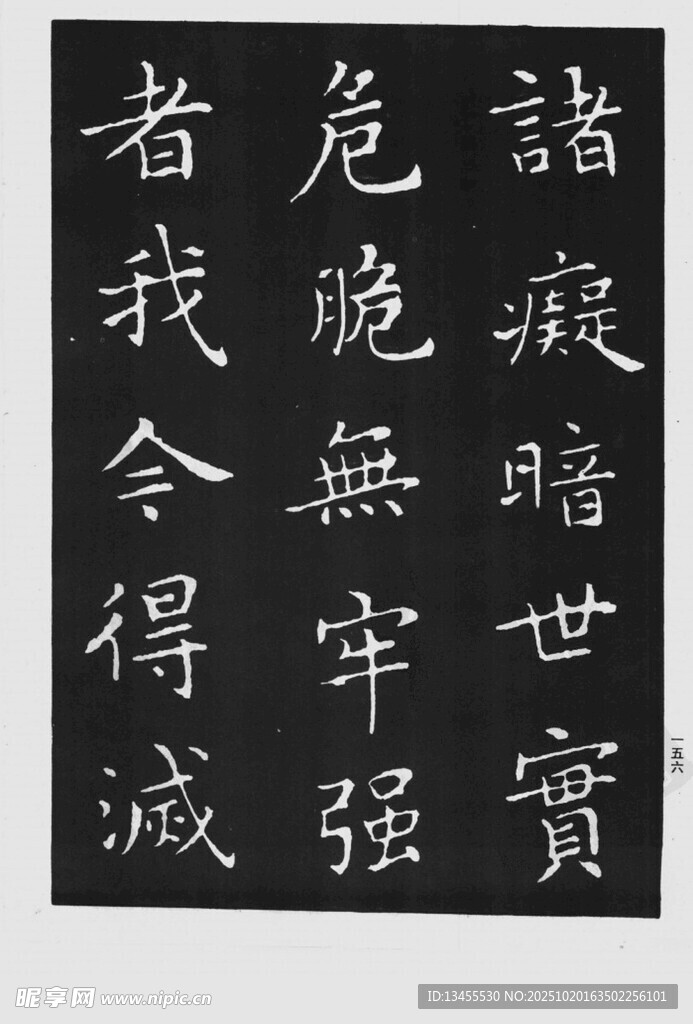 諸癡暗世實
危脆無牢强
者我今得滅
一五六
昵享网 www.nipic.cn
ID:13455530 NO:20251020163502256101